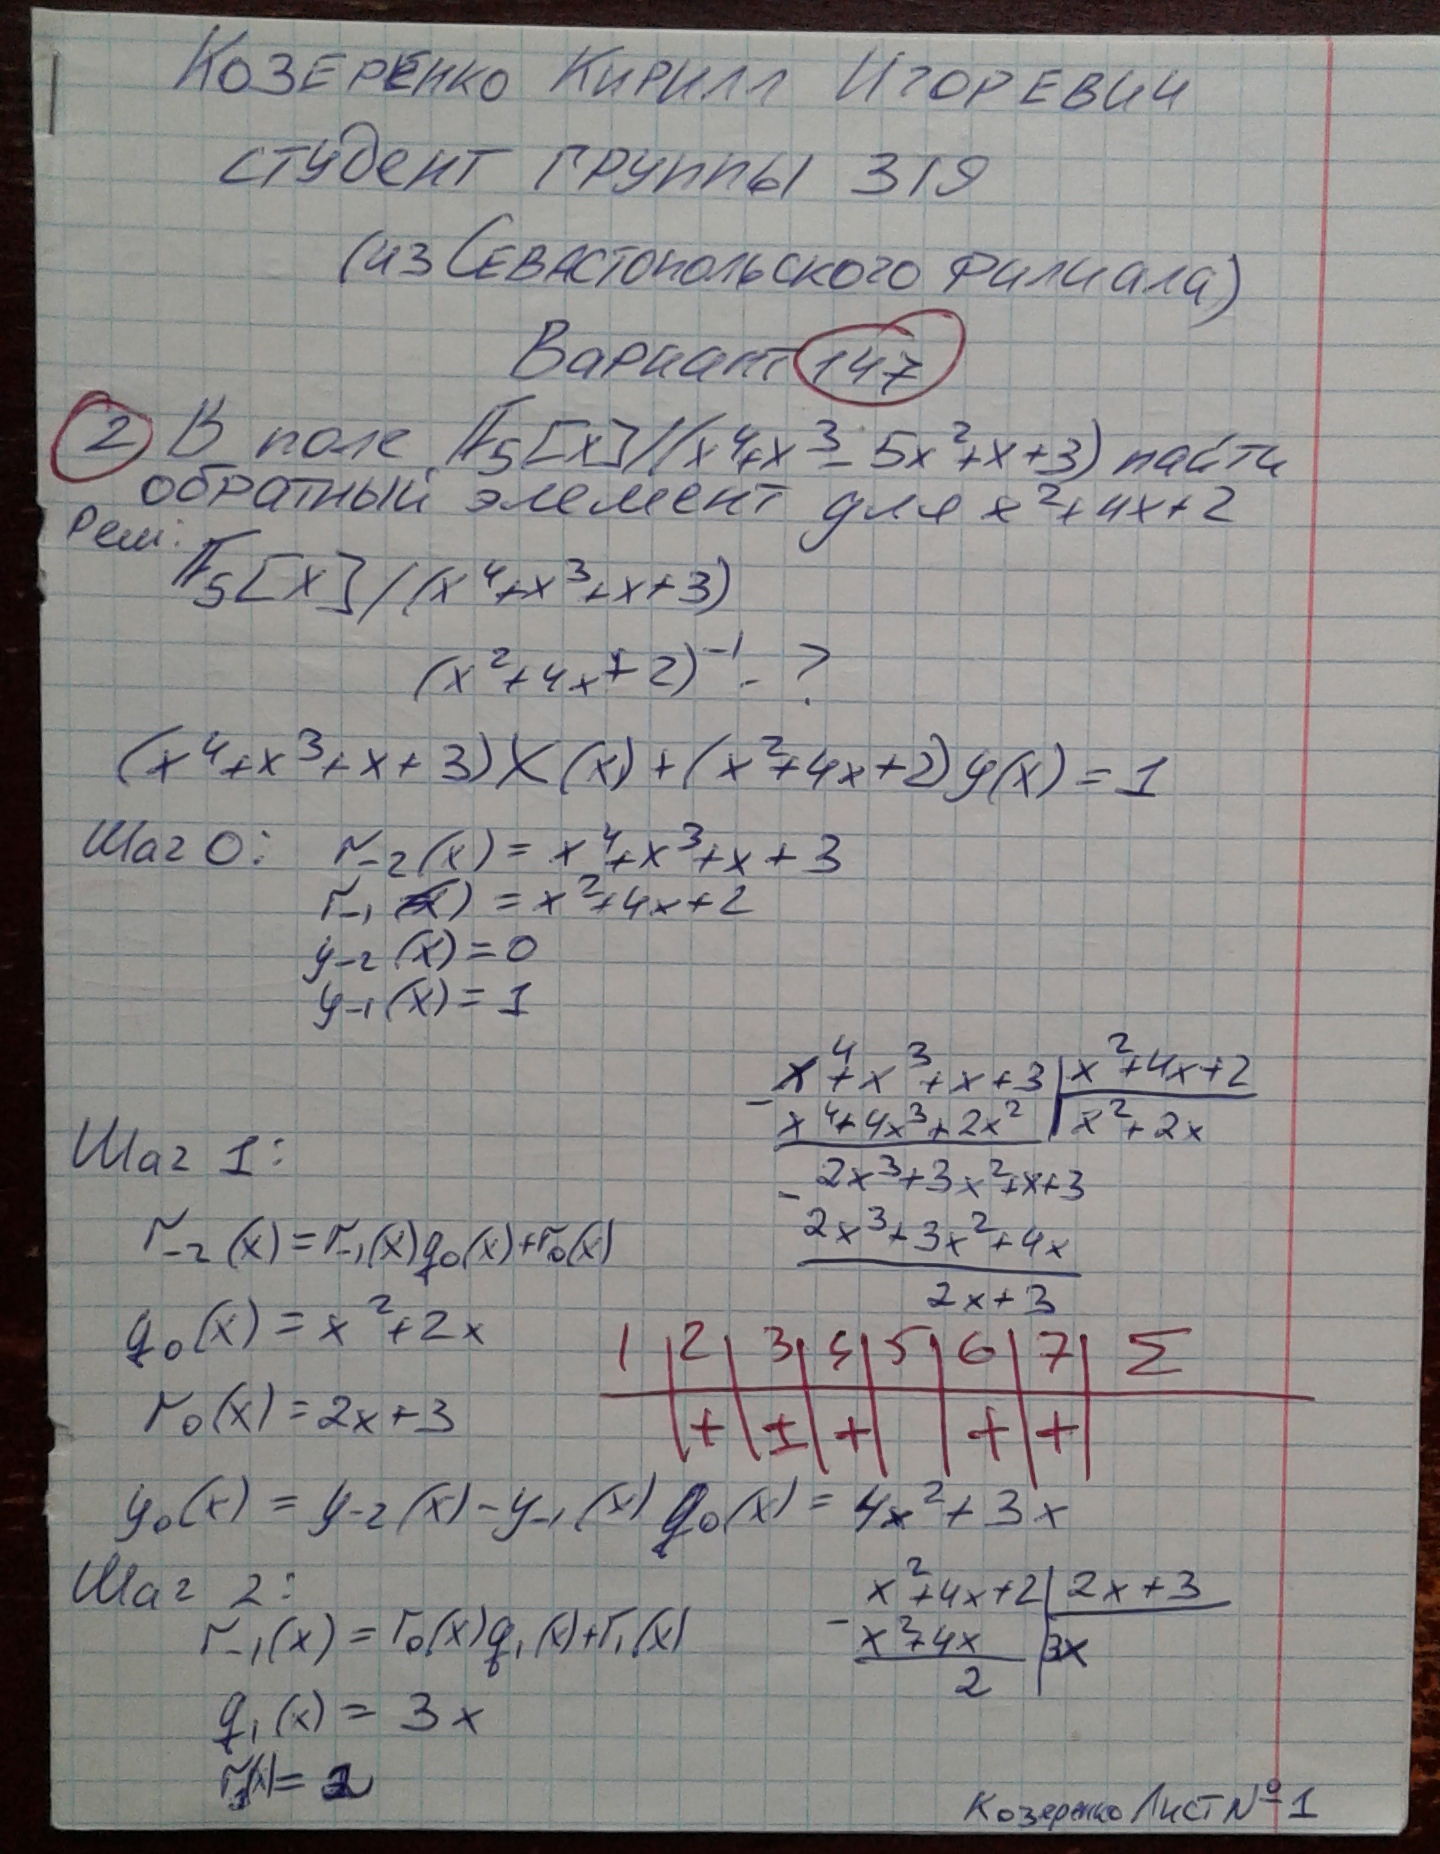 Козеренко Кирилл Игоревич
студент группы 319
(из Севастопольского филиала)
Вариант 147
2 В поле F₅[x]/(x⁴+x³-5x²+x+3) найти
обратный элемент для x²+4x+2
Реш:
F₅[x]/(x⁴+x³+x+3)
(x²+4x+2)⁻¹ - ?
(x⁴+x³+x+3)X(x)+(x²+4x+2)y(x)=1
Шаг 0: r₋₂(x)=x⁴+x³+x+3
r₋₁(x)=x²+4x+2
y₋₂(x)=0
y₋₁(x)=1
x⁴+x³+x+3 | x²+4x+2
- x⁴+4x³+2x² | x²+2x
Шаг 1:
2x³+3x²+x+3
- 2x³+3x²+4x
2x+3
r₋₂(x)=r₋₁(x)q₀(x)+r₀(x)
q₀(x)=x²+2x
1 | 2 | 3 | 4 | 5 | 6 | 7 | Σ
r₀(x)=2x+3
+ | ± | + | | + | + |
y₀(x)=y₋₂(x)-y₋₁(x)q₀(x)=4x²+3x
Шаг 2:
x²+4x+2 | 2x+3
- x²+4x | 3x
2
r₋₁(x)=r₀(x)q₁(x)+r₁(x)
q₁(x)=3x
r₁(x)=2
Козеренко Лист №1